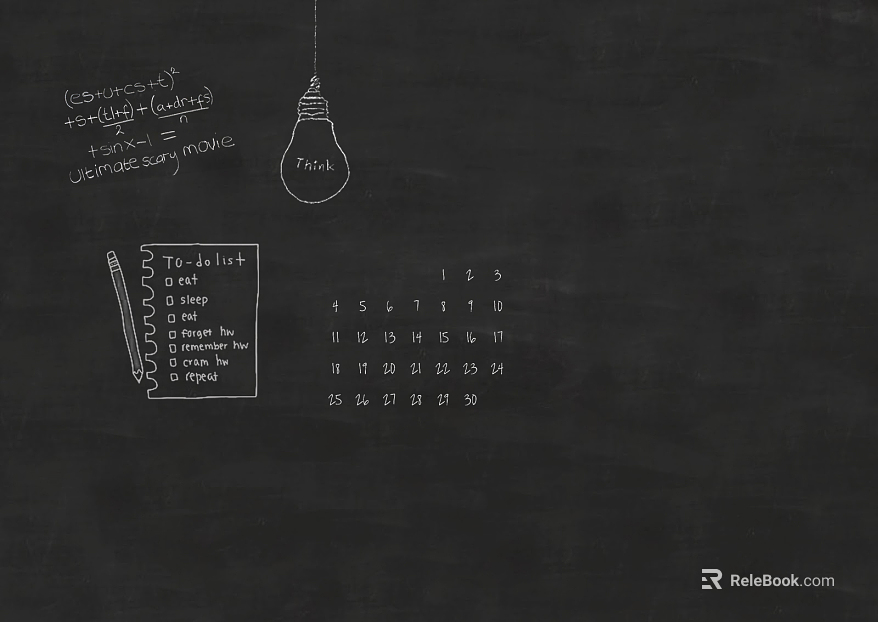 (es+u+cs+t)²
+s+(tl+f)/2+(a+dr+fs)/n
+sinx-1 =
ultimate scary movie
Think
To-do list
eat
sleep
eat
forget hw
remember hw
cram hw
repeat
1 2 3
4 5 6 7 8 9 10
11 12 13 14 15 16 17
18 19 20 21 22 23 24
25 26 27 28 29 30
ReleBook.com